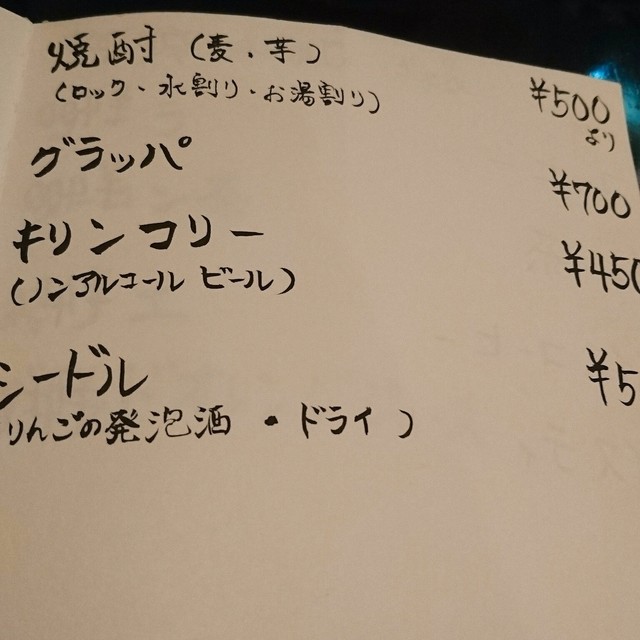 焼酎(麦・芋)
(ロック・水割り・お湯割り)
¥500
より
グラッパ
¥700
キリン コリー
¥450
(ノンアルコール ビール)
シードル
¥5
りんごの発泡酒 ・ドライ)